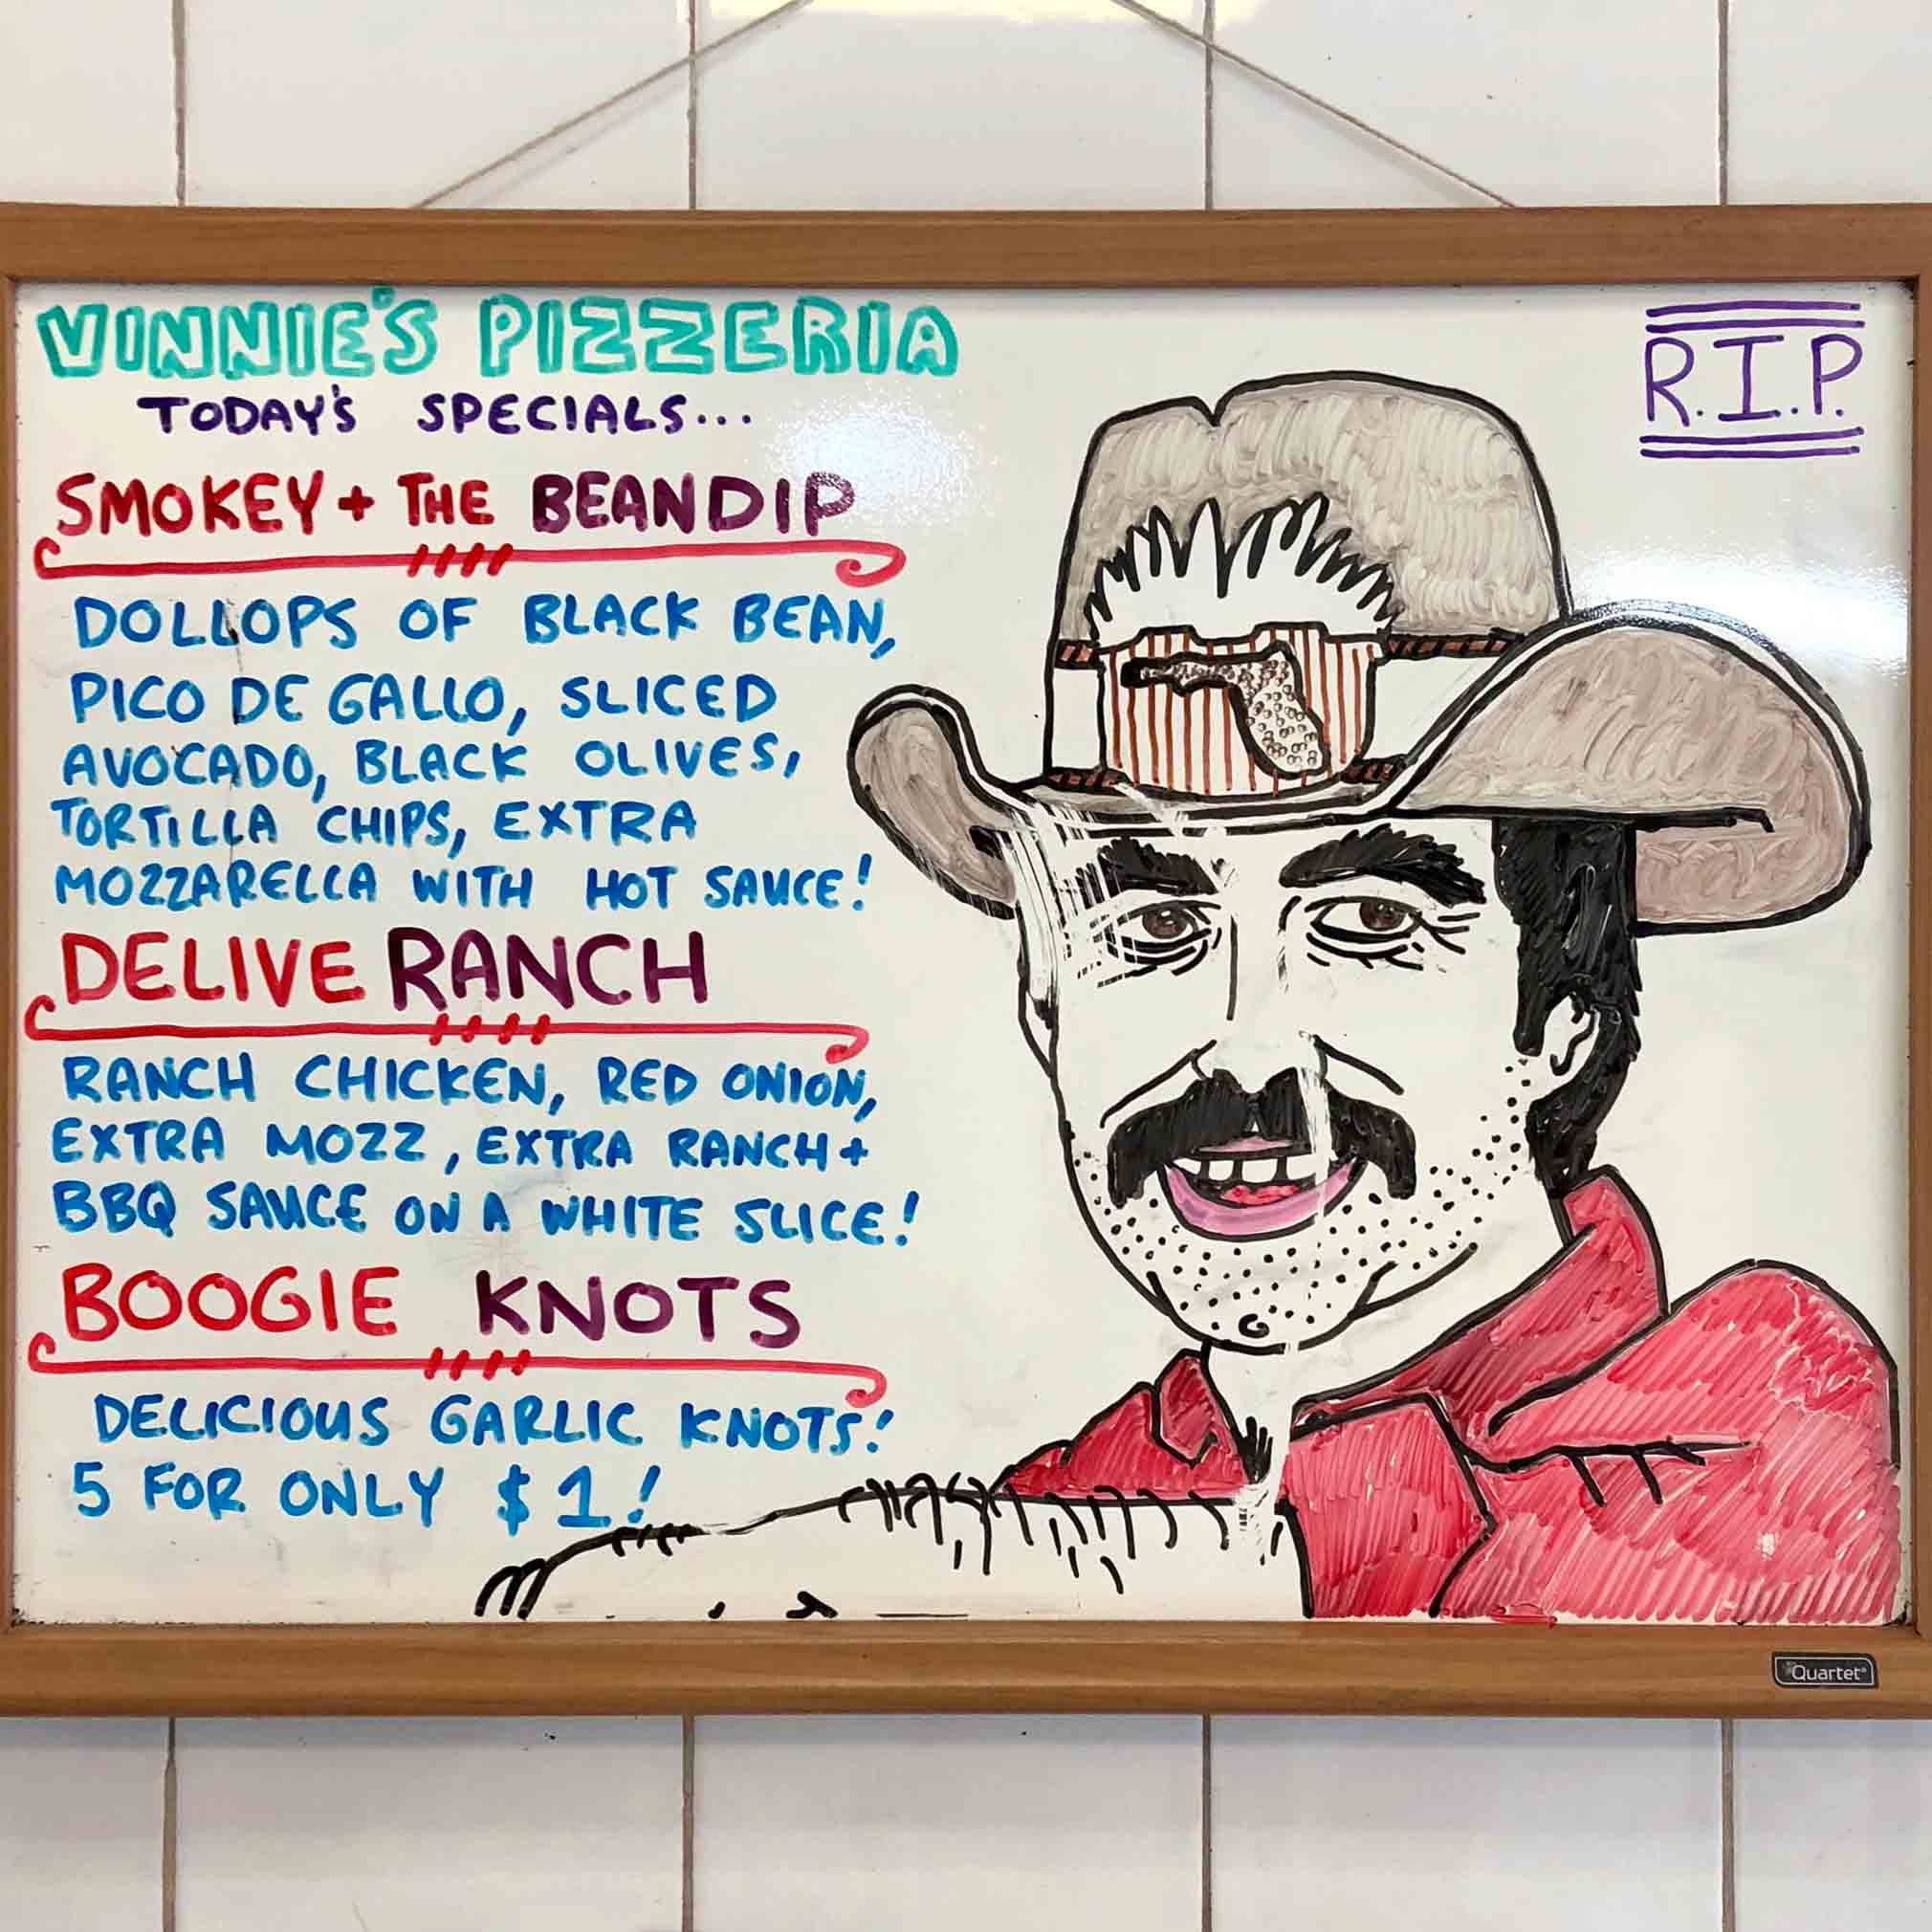 VINNIE'S PIZZERIA
TODAY'S SPECIALS...
SMOKEY + THE BEANDIP
DOLLOPS OF BLACK BEAN,
PICO DE GALLO, SLICED
AVOCADO, BLACK OLIVES,
TORTILLA CHIPS, EXTRA
MOZZARELLA WITH HOT SAUCE!
DELIVERANCH
RANCH CHICKEN, RED ONION,
EXTRA MOZZ, EXTRA RANCH +
BBQ SAUCE ON A WHITE SLICE!
BOOGIE KNOTS
DELICIOUS GARLIC KNOTS!
5 FOR ONLY $1!
R.I.P.
Quartet®